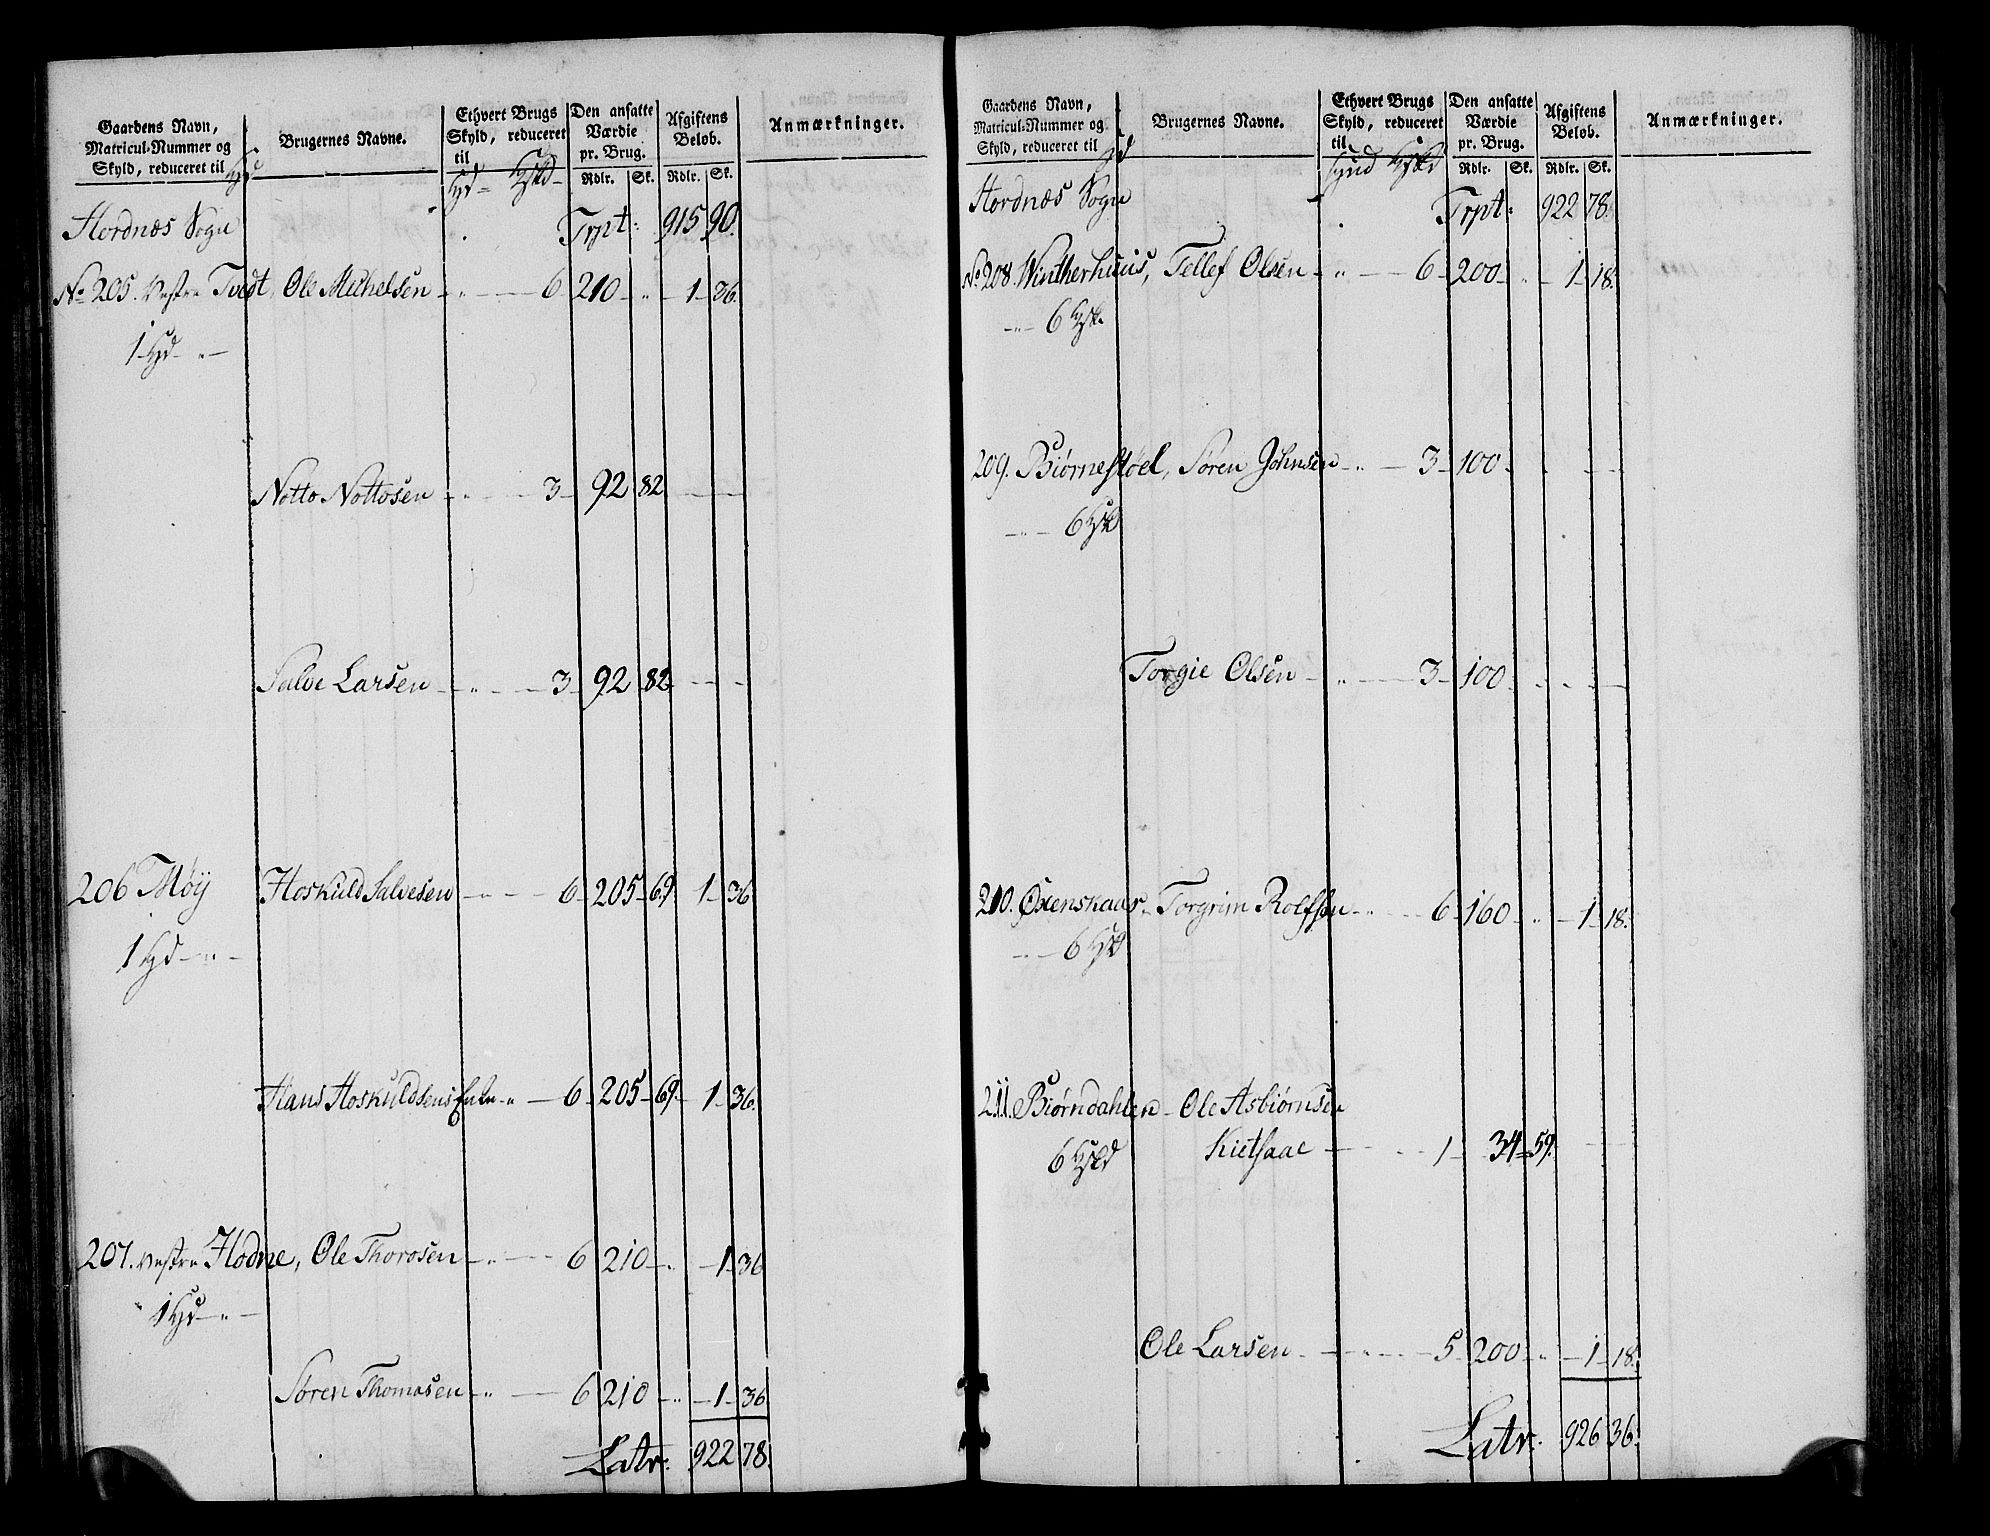 Gaardens Navn, Matricul-Nummer og Skyld, reduceret til Hd | Brugernes Navne. | Ethvert Brugs Skyld, reduceret til Hd Hskd | Den ansatte Værdie pr. Brug. Rdlr. Sk. | Afgiftens Beløb. Rdlr. Sk. | Anmærkninger.
Hordnæs Sogn Trpt: 915 90.
No 205. Vestre Tvedt, Ole Michelsen - " - 6 - 210 - " - 1 - 36.
1 Hd - " -
Notto Nottosen - " - 3 - 92 82 - -
Salve Larsen - " - 3 - 92 82 - - -
206 Møy Hoskuld Salvesen - " - 6 - 205 - 69. 1 - 36
1 Hd - " -
Hans Hoskuldsens Enke - " - 6 - 205 - 69. - 1 - 36.
207. Vestre Hodne, Ole Thorosen - " - 6 210 - " - 1 - 36
1 Hd - " -
Søren Thomasen - " - 6 210 - " - 1 - 36.
Latr: 922 78.
Gaardens Navn, Matricul-Nummer og Skyld, reduceret til | Brugernes Navne. | Ethvert Brugs Skyld, reduceret til | Den ansatte Værdie pr. Brug. Rdlr. Sk. | Afgiftens Beløb. Rdlr. Sk. | Anmærkninger.
Hordnæs Sogn Trpt: 922 78.
No 208. Wintherhuus, Tellef Olsen - " - 6 - 200 - " - 1 - 18.
- " - 6 Hsk.
209. Biørnestøel, Søren Johnsen - " - 3 - 100 - - -
- " - 6 Hskd
Torgie Olsen - " - 3 - 100 - - -
210. Oxenskaar - Torgrim Rolfsen - " - 6 - 160 - " - 1 - 18.
- " - 6 Hskd
211. Biørndahlen - Ole Asbiørnsen
6 Hskd - - - 1 - 34 - 59. - -
Ole Larsen - " - 5 - 200 - " - 1 - 18.
Latr: 926 36.